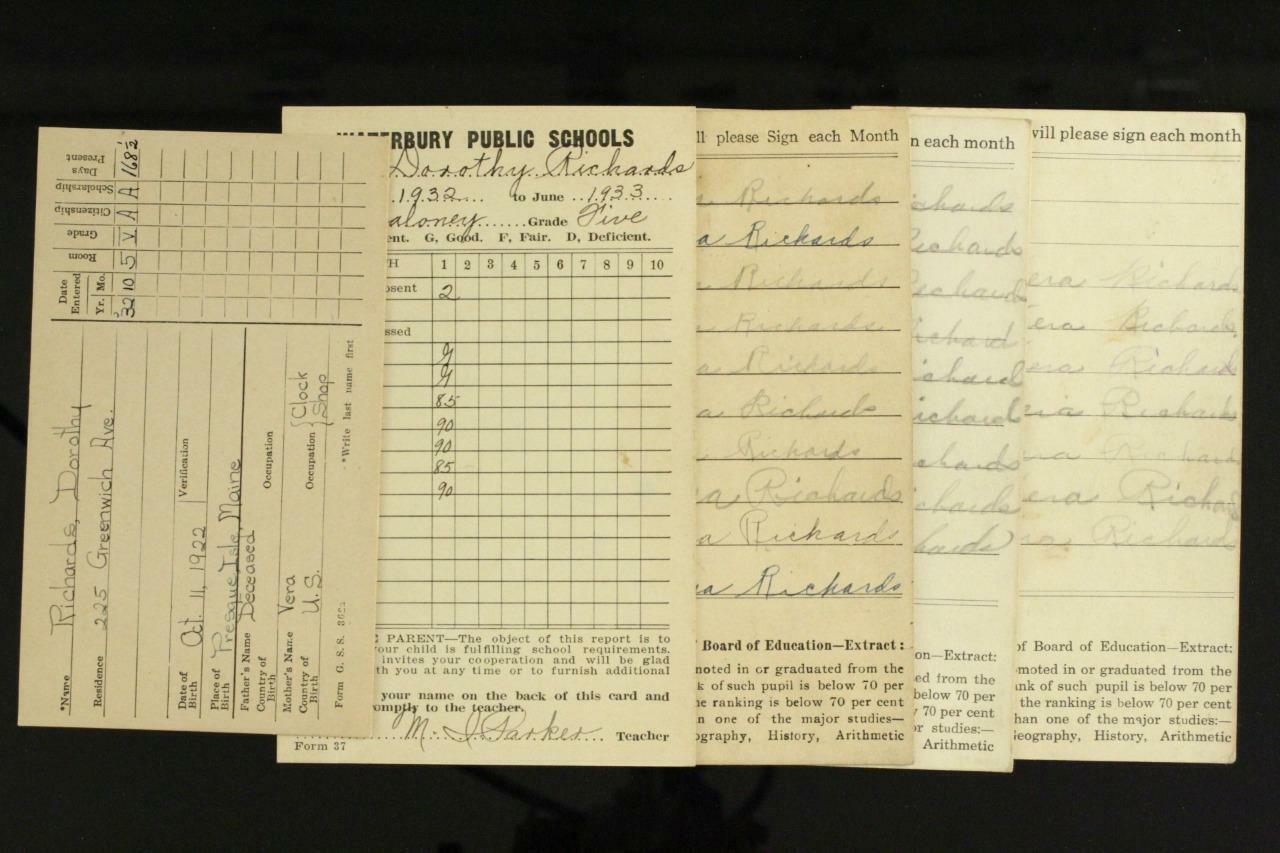 *Name Richards, Dorothy
Residence 225 Greenwich Ave.
Date of Birth Oct. 11, 1922 Verification
Place of Birth Presque Isle, Maine
Father's Name Deceased
Country of Birth Occupation
Mother's Name Vera
Country of Birth U.S. Occupation { Clock Shop
Form G. S. S. *Write last name first
Date Entered Yr. Mo. Room Grade Citizenship Scholarship Days Present
'32 10 5 V A A 168½
WATERBURY PUBLIC SCHOOLS
Dorothy Richards
1932 to June 1933
aloney Grade Five
ent. G, Good. F, Fair. D, Deficient.
TH 1 2 3 4 5 6 7 8 9 10
bsent 2
ssed
G
G
85
90
90
85
90
E PARENT—The object of this report is to
our child is fulfilling school requirements.
invites your cooperation and will be glad
th you at any time or to furnish additional
your name on the back of this card and
omptly to the teacher.
M. J. Parker Teacher
Form 37
ll please Sign each Month
Richards
a Richards
Richards
Richards
a Richards
a Richards
Richards
a Richards
a Richards
ra Richards
f Board of Education—Extract:
moted in or graduated from the
k of such pupil is below 70 per
he ranking is below 70 per cent
n one of the major studies—
ography, History, Arithmetic
n each month
ichards
Richards
Richards
ichard
ichard
ichard
chards
ichards
hards
on—Extract:
ed from the
below 70 per
70 per cent
or studies:—
Arithmetic
will please sign each month
era Richards
era Richards
era Richards
era Richards
ra Richards
era Richard
ra Richards
of Board of Education—Extract:
moted in or graduated from the
ank of such pupil is below 70 per
the ranking is below 70 per cent
than one of the major studies:—
Geography, History, Arithmetic